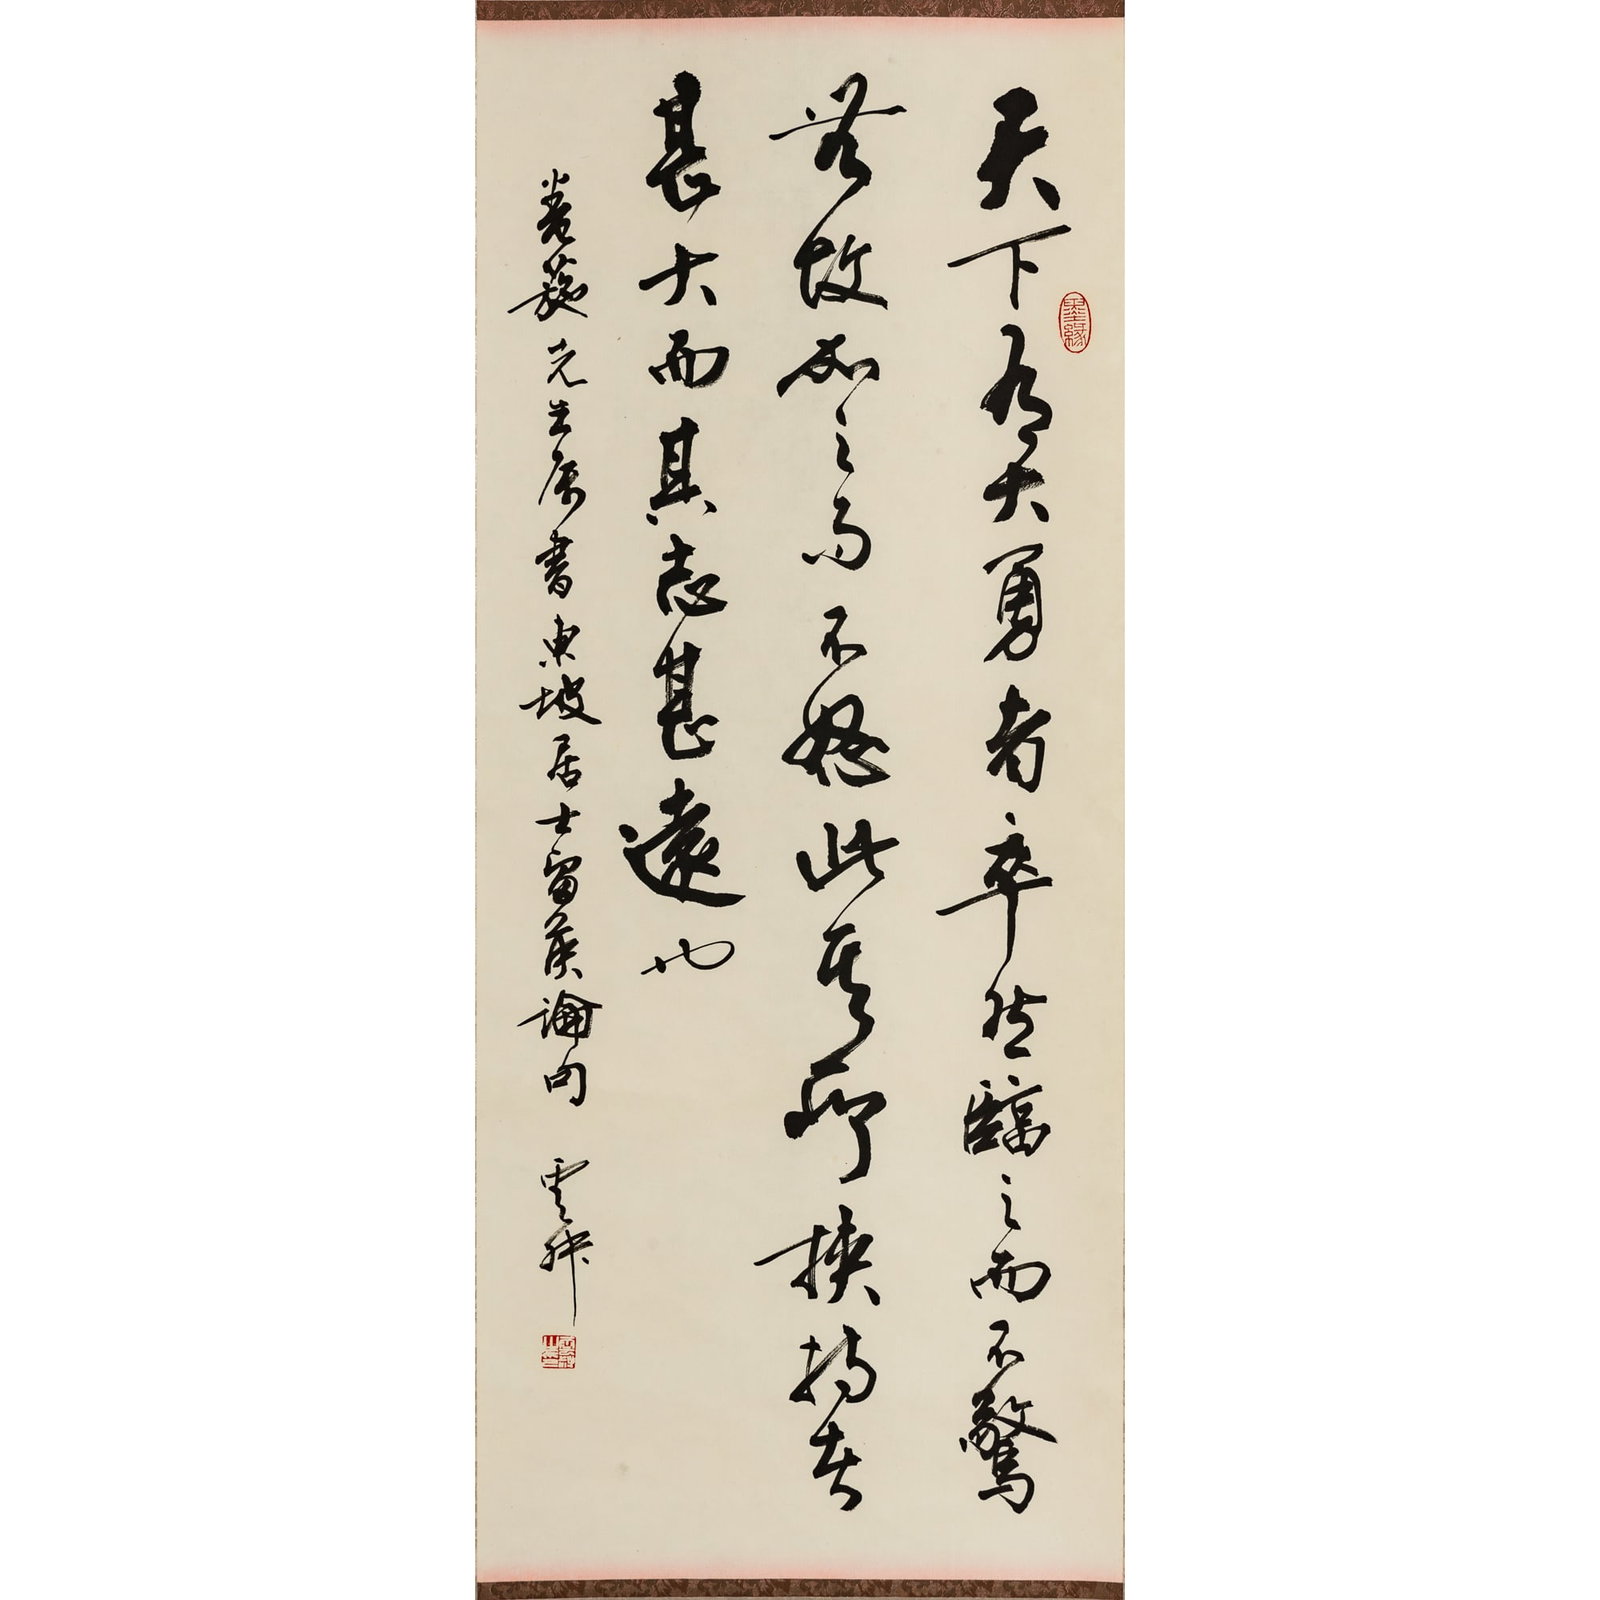 天下有大勇者卒然臨之而不驚
無故加之而不怒此其所挾持者
甚大而其志甚遠也
先生属書東坡居士留侯論句